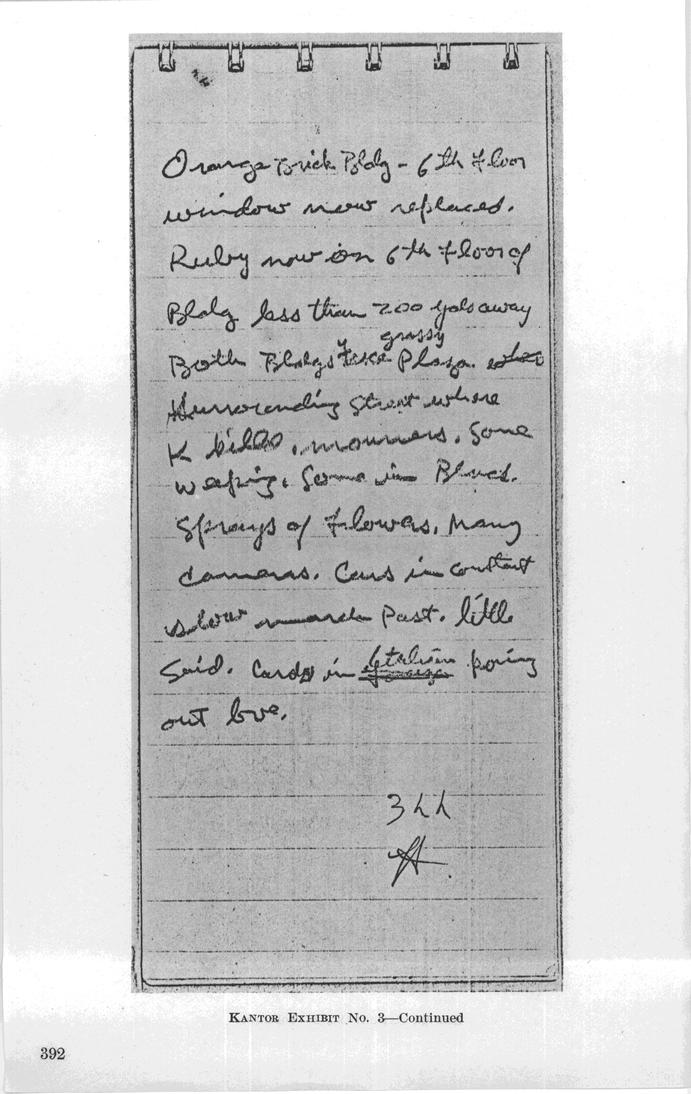 Orange Brick Bldg - 6th Floor
window now replaced.
Ruby now on 6th Floor of
Bldg less than 200 yds away
grassy
Both Bldgs face Plaza
surrounding street where
K killed. mourners. Some
weeping. Some in
Sprays of Flowers. Many
Cameras. Cars in constant
slow march past. little
Said. Cards in poring
out love.
344
KANTOR EXHIBIT No. 3—Continued
392